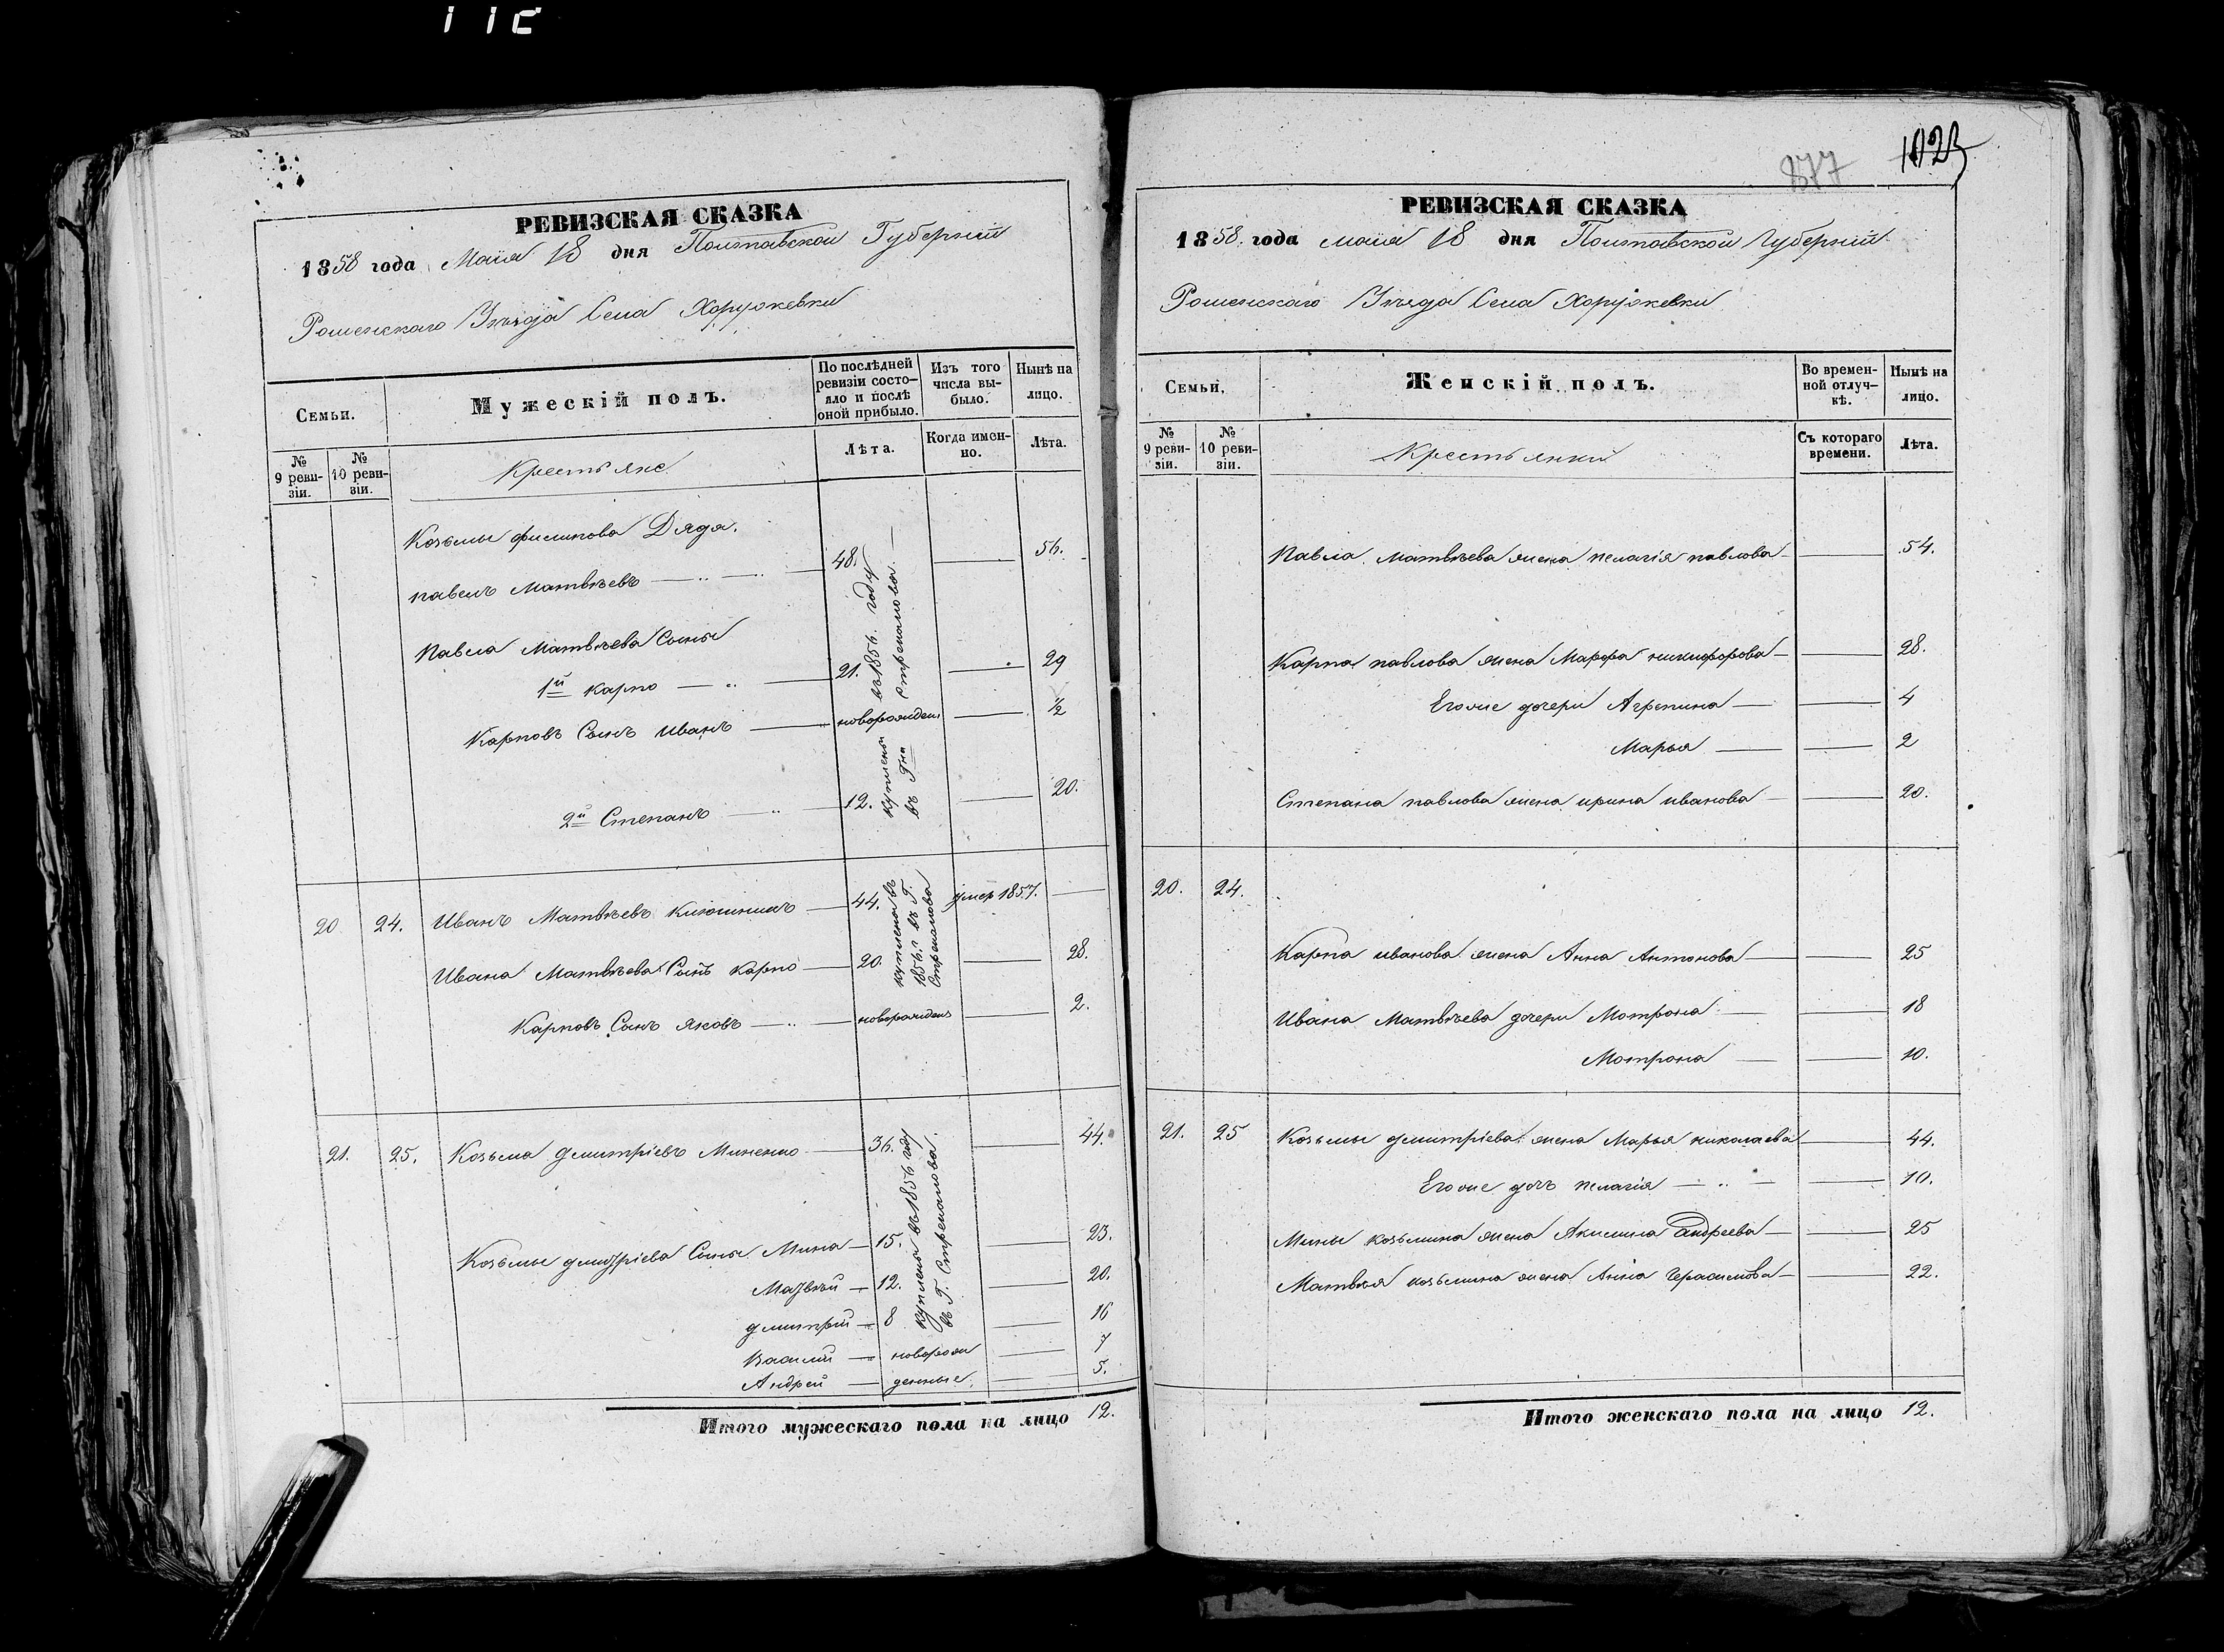 877 1023
РЕВИЗСКАЯ СКАЗКА
1858 года Маія 18 дня Полтавской Губерніи
Роменскаго Уѣзда Села Хоружевки
Семьи.
Мужескій полъ.
По послѣдней ревизіи состояло и послѣ оной прибыло.
Изъ того числа выбыло.
Нынѣ на лицо.
№ 9 ревизіи.
№ 10 ревизіи.
Крестьяне
Лѣта.
Когда именно.
Лѣта.
Козьмы филипова Дядя.
павелъ Матвѣевъ — 48. — 56.
Павла Матвѣева Сыны
1й карпо — 21. — 29
Карповъ Сынъ иванъ — новорожденъ — ½
2й Степанъ — 12. — 20.
куплены въ 1856. году
въ Гна Стремоухова
20 24. Иванъ Матвѣевъ — 44. умер 1857. —
Ивана Матвѣева Сынъ карпо — 20. — 28.
Карповъ Сынъ яковъ — новорожденъ — 2.
куплены въ
1856. г. въ Г.
21. 25. Козьма дмитріевъ Миненко — 36. — 44.
Козьмы дмитріева Сыны Мина — 15. — 23.
Матвѣй — 12. — 20.
дмитрій — 8 — 16
Василій — новорож — 7
Андрей — денные — 5.
куплены въ 1856 году
въ Г.
Итого мужескаго пола на лицо 12.
РЕВИЗСКАЯ СКАЗКА
1858. года маія 18 дня Полтавской Губерніи
Роменскаго Уѣзда Села Хоружевки
Семьи.
Женскій полъ.
Во временной отлучкѣ.
Нынѣ на лицо.
№ 9 ревизіи.
№ 10 ревизіи.
Крестьянки
Съ котораго времени.
Лѣта.
Павла Матвѣева жена пелагія павлова — 54.
Карпа павлова жена Марфа никифорова — 28.
Егоже дочери Агрепина — 4
Марья — 2
Степана павлова жена ирина иванова — 20.
20. 24.
Карпа иванова жена Анна Антонова — 25
Ивана Матвѣева дочери Мотрона — 18
Мотрона — 10.
21. 25 Козьмы дмитріева жена Марья николаева — 44.
Егоже дочь пелагія — 10.
Мины козьмина жена Акилина Андреева — 25
Матвѣя козьмина жена Анна Герасимова — 22.
Итого женскаго пола на лицо 12.